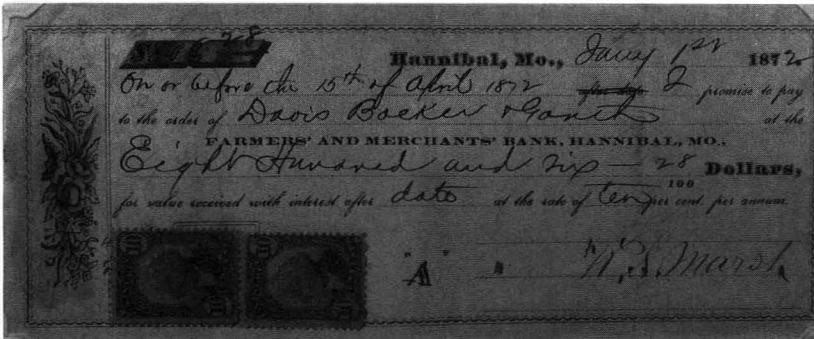 28
Hannibal, Mo., Jany 1st 1872
On or before the 15th of April 1872 after date I promise to pay
to the order of Davis Bocker & at the
FARMERS' AND MERCHANTS' BANK, HANNIBAL, MO.,
Eight Hundred and six — 28/100 Dollars,
for value received with interest after date at the rate of ten per cent. per annum.
"A" Marsh